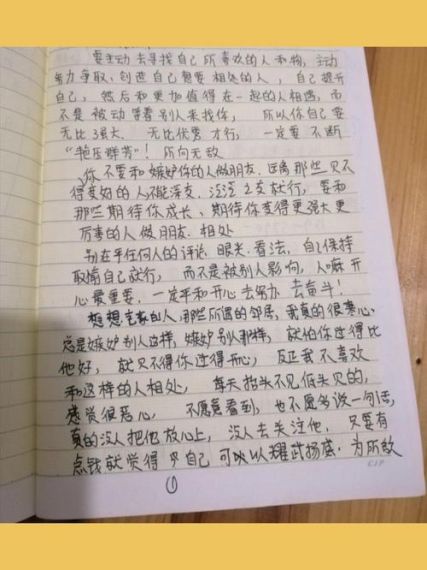 要主动去寻找自己所喜欢的人和物，主动
努力争取、创造自己想要相处的人，自己提升
自己，然后和更加值得在一起的人相遇，而
不是被动等着别人来找你，所以你自己要
无比强大、无比优秀才行，一定要不断
“艳压群芳”！所向无敌
你不要和嫉妒你的人做朋友，远离那些见不
得变好的人不能深交，泛泛之交就行，要和
那些期待你成长、期待你变得更强大更
厉害的人做朋友，相处
别在乎任何人的评论、眼光、看法，自己保持
取愉自己就行，而不是被别人影响，人嘛开
心最重要，一定平和开心去努力、去奋斗！
想想老家的人，那些所谓的邻居，我真的很寒心，
总是嫉妒别人这样，嫉妒别人那样，就怕你过得比
他好，就见不得你过得开心，反正我不喜欢
和这样的人相处，每天抬头不见低头见的，
感觉很恶心，不愿意看到，也不愿多说一句话，
真的没人把他放心上，没人去关注他，只要有
点钱就觉得自己可以以耀武扬威，为所欲
①